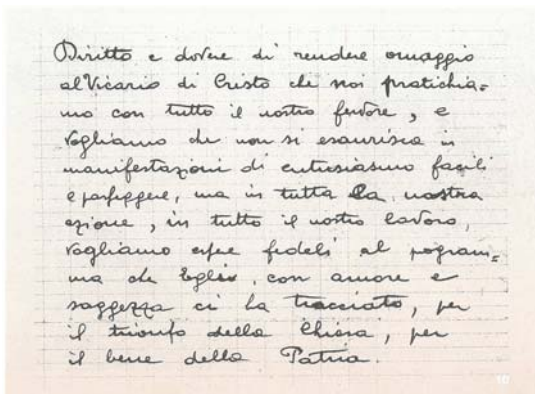 Diritto e dovere di rendere omaggio
al Vicario di Cristo che noi pratichia=
mo con tutto il nostro fervore, e
vogliamo che non si esaurisca in
manifestazioni di entusiasmo facili
e passeggere, ma in tutta la nostra
azione, in tutto il nostro lavoro,
vogliamo essere fedeli al program=
ma che Egli, con amore e
saggezza ci ha tracciato, per
il trionfo della Chiesa, per
il bene della Patria.
10